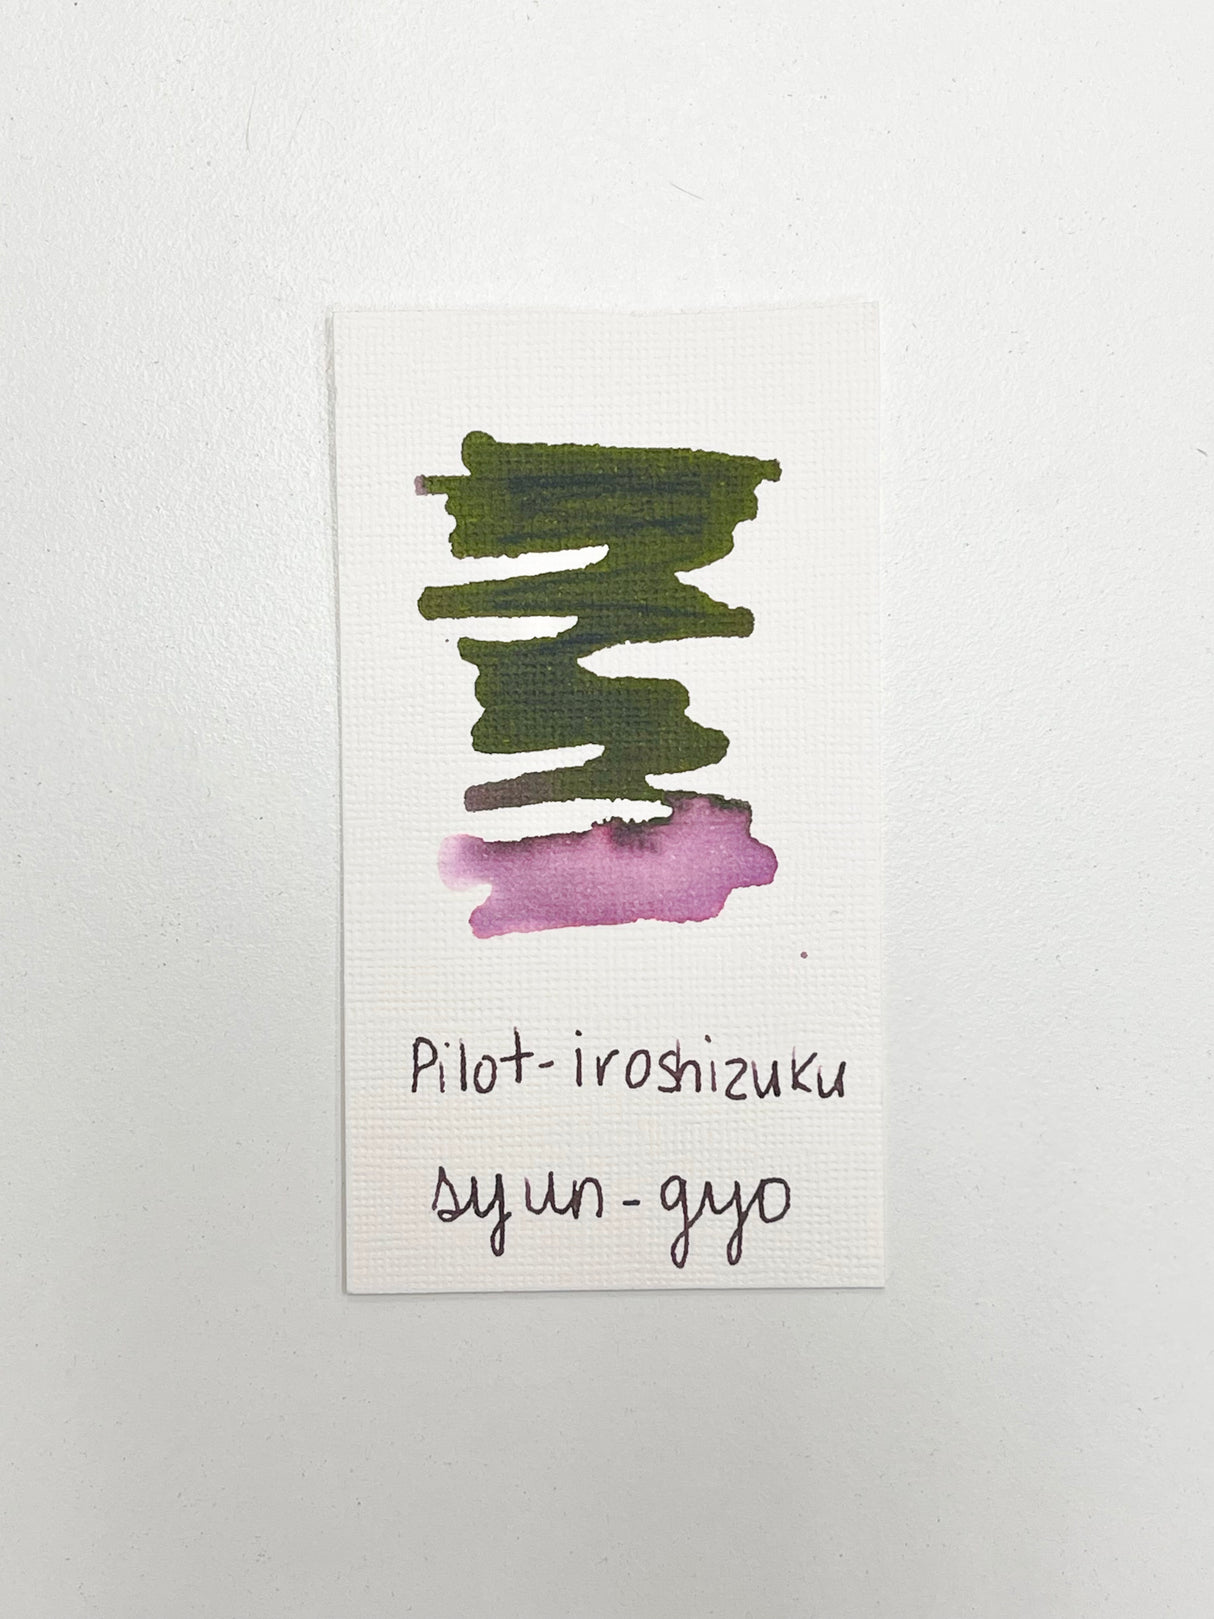 Pilot-iroshizuku
syun-gyo